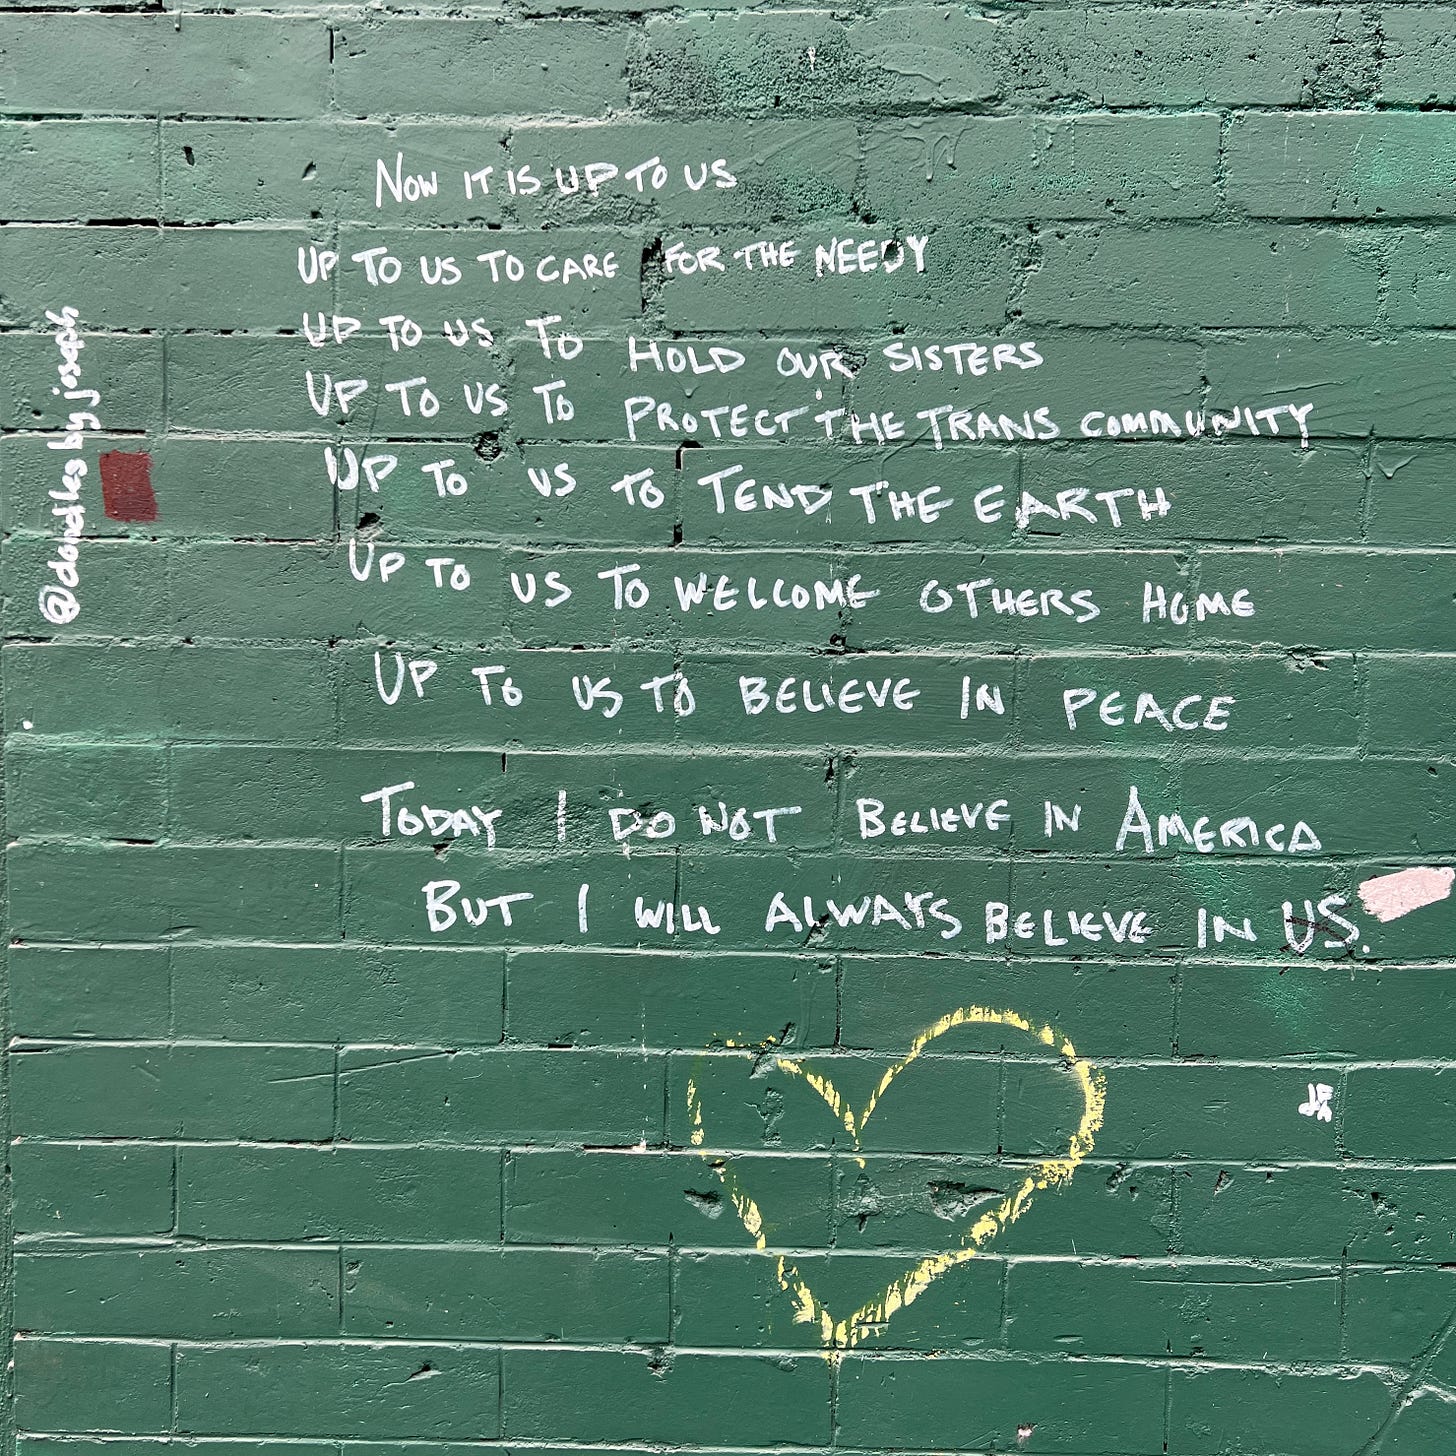 NOW IT IS UP TO US
UP TO US TO CARE FOR THE NEEDY
UP TO US TO HOLD OUR SISTERS
UP TO US TO PROTECT THE TRANS COMMUNITY
UP TO US TO TEND THE EARTH
UP TO US TO WELCOME OTHERS HOME
UP TO US TO BELIEVE IN PEACE
TODAY I DO NOT BELIEVE IN AMERICA
BUT I WILL ALWAYS BELIEVE IN US.
@doodles by joseph